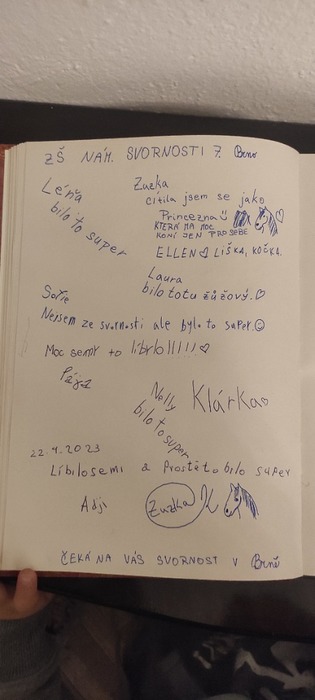 ZŠ NÁM. SVORNOSTI 7. Brno
Léňa
bilo to super
Zuzka
cítila jsem se jako
Princezna
KTERÁ MA MOC
KONÍ JEN PRO SEBE
ELLEN LIŠKA, KOČKA.
Laura
bilo totu žůžový.
Sofie
Nejsem ze svornosti ale bylo to super.
Moc semi to líbylo!!!!!
Pája
Nelly
bilo to super
Klárka
22.4.2023
Líbilosemi a Prostěto bilo super
Adji
Zuzka
ČEKÁ NA VÁS SVORNOST V Brně